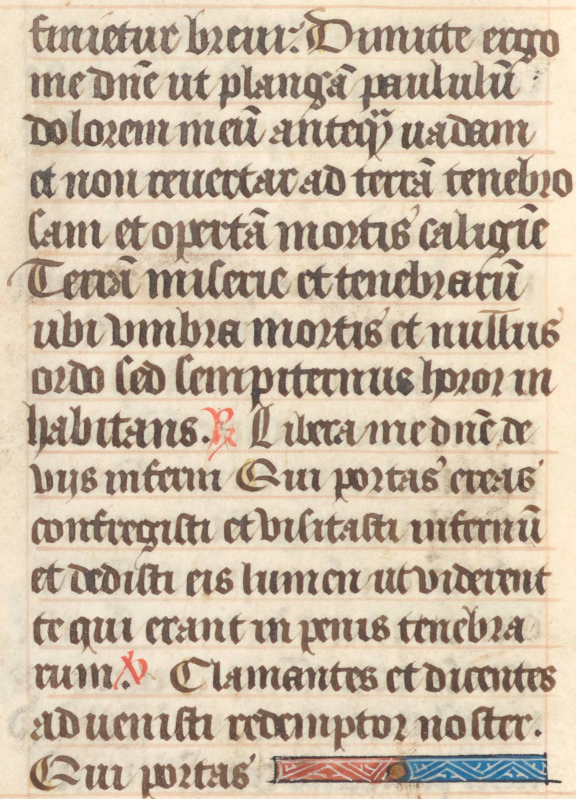 finietur breui: Dimitte ergo
me dn̄e ut plangā paululū
dolorem meū anteq̄ʒ uadam
et non reuertar ad terrā tenebro
sam et opertā mortis caligīe
Terrā miserie et tenebrarū
ubi vmbra mortis et nullus
ordo sed sempiternus horror in
habitans. ℟ Libera me dn̄e de
viis inferni Qui portas ereas
confregisti et visitasti infernū
et dedisti eis lumen ut viderent
te qui erant in penis tenebra
rum. ℣ Clamantes et dicentes
aduenisti redemptor noster.
Qui portas